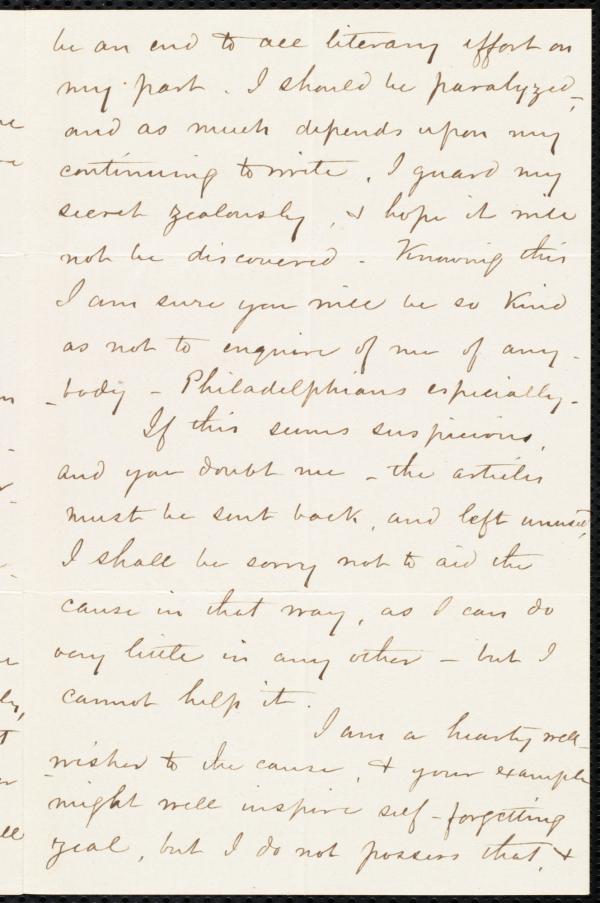 be an end to all literary effort on
my part. I should be paralyzed,
and as much depends upon my
continuing to write, I guard my
secret zealously, & hope it will
not be discovered - Knowing this
I am sure you will be so kind
as not to enquire of me of any-
-body - Philadelphians especially -
If this seems suspicious,
and you doubt me - the articles
must be sent back, and left unused,
I shall be sorry not to aid the
cause in that way, as I can do
very little in any other - but I
cannot help it.
I am a hearty well-
-wisher to the cause, & your example
might well inspire self-forgetting
zeal, but I do not possess that, &